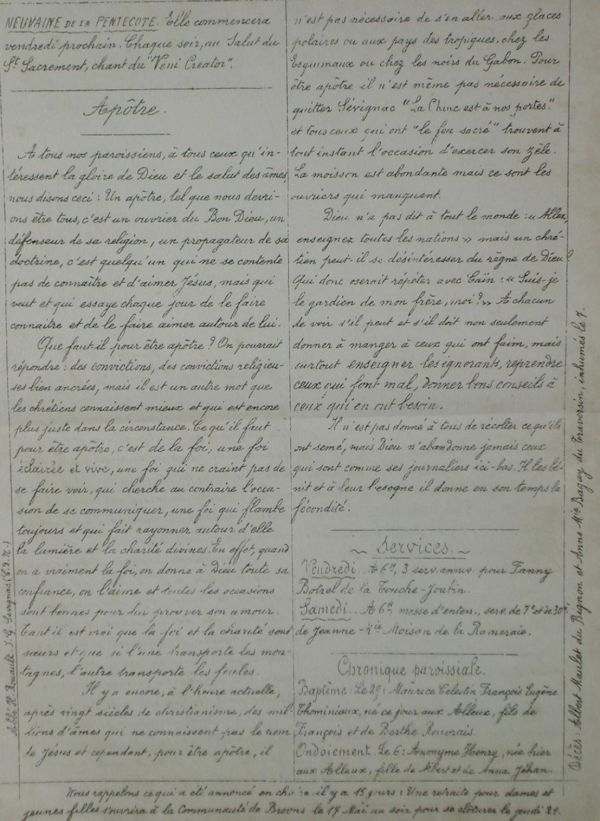 NEUVAINE DE LA PENTECOTE. Elle commencera
vendredi prochain. Chaque soir, au Salut du
St Sacrement, chant du "Veni Creator".
Apôtre.
A tous nos paroissiens, à tous ceux qu'in-
téressent la gloire de Dieu et le salut des âmes,
nous disons ceci : Un apôtre, tel que nous devri-
ons être tous, c'est un ouvrier du Bon Dieu, un
défenseur de sa religion, un propagateur de sa
doctrine, c'est quelqu'un qui ne se contente
pas de connaître et d'aimer Jésus, mais qui
veut et qui essaye chaque jour de le faire
connaitre et de le faire aimer autour de lui.
Que faut-il pour être apôtre ? On pourrait
répondre : des convictions, des convictions religieu-
ses bien ancrées, mais il est un autre mot que
les chrétiens connaissent mieux et qui est encore
plus juste dans la circonstance. Ce qu'il faut
pour être apôtre, c'est de la foi, une foi
éclairée et vive, une foi qui ne craint pas de
se faire voir, qui cherche au contraire l'occa-
sion de se communiquer, une foi qui flambe
toujours et qui fait rayonner autour d'elle
la lumière et la charité divines. En effet, quand
on a vraiment la foi, on donne à Dieu toute sa
confiance, on l'aime et toutes les occasions
sont bonnes pour lui prouver son amour.
Tant il est vrai que la foi et la charité sont
sœurs et que si l'une transporte les mon-
tagnes, l'autre transporte les foules.
Il y a encore, à l'heure actuelle,
après vingt siècles de christianisme, des mil-
lions d'âmes qui ne connaissent pas le nom
de Jésus et cependant, pour être apôtre, il
n'est pas nécessaire de s'en aller aux glaces
polaires ou aux pays des tropiques, chez les
esquimaux ou chez les noirs du Gabon. Pour
être apôtre il n'est même pas nécessaire de
quitter Sévignac "La Chine est à nos portes"
et tous ceux qui ont "le feu sacré" trouvent à
tout instant l'occasion d'exercer son zèle.
La moisson est abondante mais ce sont les
ouvriers qui manquent.
Dieu n'a pas dit à tout le monde : « Allez,
enseignez toutes les nations » mais un chré-
tien peut-il se désintéresser du règne de Dieu ?
Qui donc oserait répéter avec Caïn : « Suis-je
le gardien de mon frère, moi ? » A chacun
de voir s'il peut et s'il doit non seulement
donner à manger à ceux qui ont faim, mais
surtout enseigner les ignorants, reprendre
ceux qui font mal, donner bons conseils à
ceux qui en ont besoin.
Il n'est pas donné à tous de récolter ce qu'ils
ont semé, mais Dieu n'abandonne jamais ceux
qui sont comme ses journaliers ici-bas. Il les bé-
nit et à leur besogne il donne en son temps la
fécondité.
Services.
Vendredi. A 6h, 3 serv. anniv. pour Fanny
Botrel de la Touche-Joubin.
Samedi. A 6h messe d'enten, serv. de 7e et de 30e
de Jeanne-Marie Moison de la Rameraie.
Chronique paroissiale.
Baptême. Le 29 : Maurice Celestin François Eugène
Thominiaux, né ce jour aux Alleux, fils de
François et de Berthe Renorais.
Ondoiement. Le 6 : Anonyme Henry, née hier
aux Alleux, fille de Albert et de Anna Jéhan.
Décès : Albert Maulet du Bignon et Anne Mie Bagay du Traversin, inhumés le 7.
Nous rappelons ce qui a été annoncé en chaire il y a 15 jours : Une retraite pour dames et
jeunes filles s'ouvrira à la Communauté de Broons le 17 Mai au soir pour se clôturer le jeudi 21.